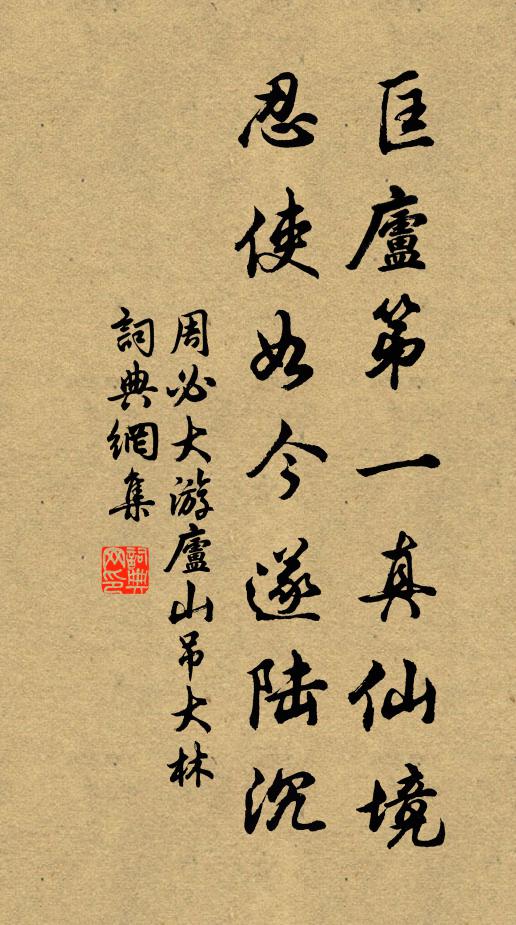 匡廬第一真仙境
忍使如今遂陆沉
周必大游廬山吊大林
詞典網集
詞典
网印